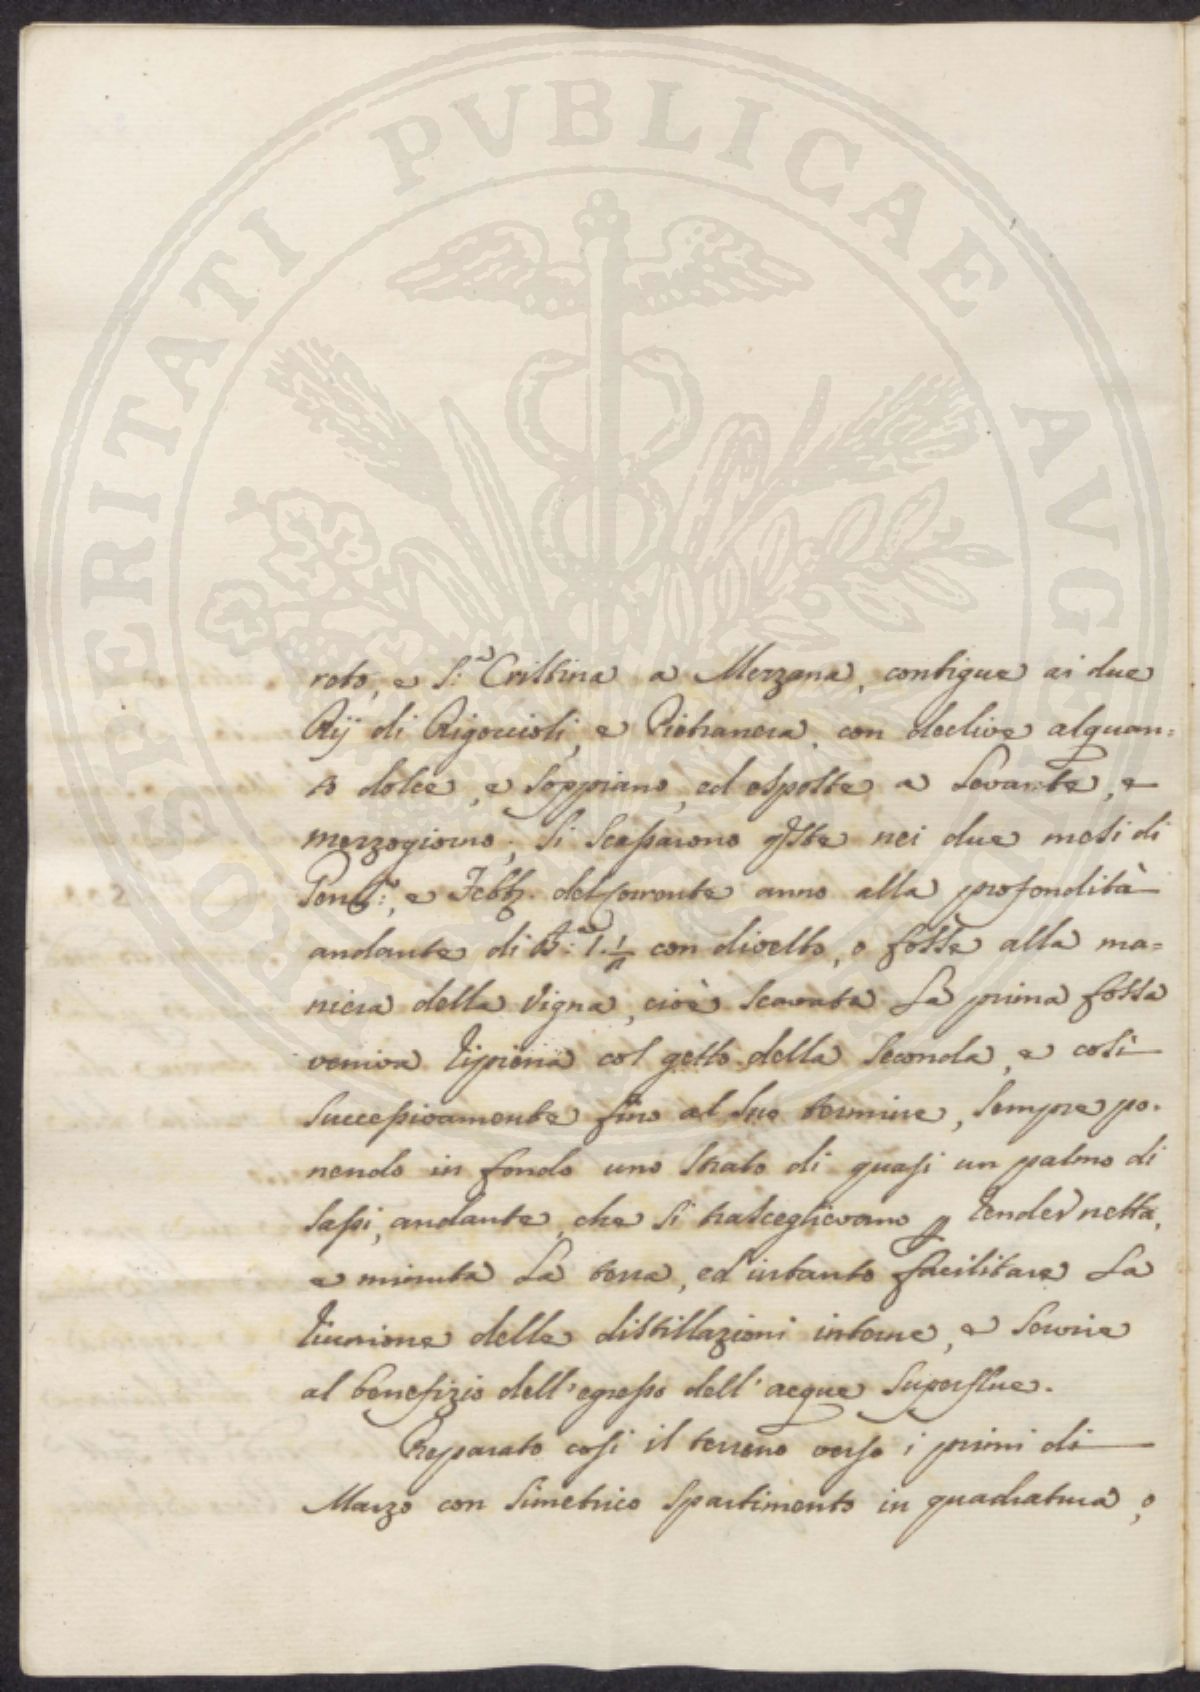 PROSPERITATI PUBLICAE AUGE
roto, e S.a Cristina a Mezzana, contigue ai due
Rij di Rigoccioli, e Pietranera, con declive alquan=
to dolce, e soppiano, ed esposte a Levante, e
mezzogiorno; si scassarono qste nei due mesi di
Genn.o, e Febb. del corrente anno alla profondità
andante di B.a 1. 1/2 con divelto, o fosse alla ma=
niera della Vigna, cioè scavata La prima fossa
veniva ripiena col getto della seconda, e così
successivamente fino al suo termine, sempre po-
nendo in fondo uno strato di quasi un palmo di
sassi, andante, che si trasceglievano p render netta,
e minuta La terra, ed intanto facilitare La
riunione delle distillazioni interne, e servire
al benefizio dell'egresso dell'acque superflue.
Preparato così il terreno verso i primi di
Marzo con simetrico spartimento in quadratura, o